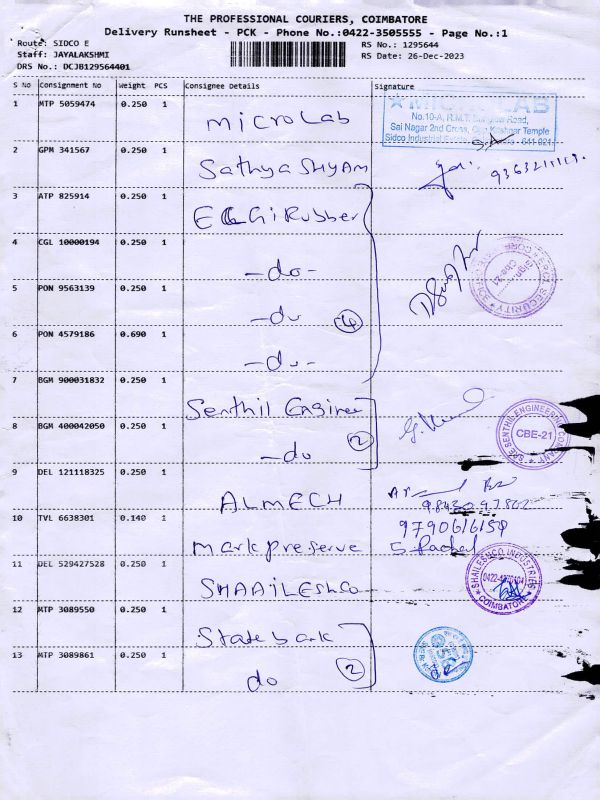 THE PROFESSIONAL COURIERS, COIMBATORE
Delivery Runsheet - PCK - Phone No.:0422-3505555 - Page No.:1
Route: SIDCO E
RS No.: 1295644
Staff: JAYALAKSHMI
RS Date: 26-Dec-2023
DRS No.: DCJB129564401
S No Consignment No Weight PCS Consignee Details Signature
1 MTP 5059474 0.250 1 microLab
MICRO LAB
No.10-A, R.M.T. Road,
Sai Nagar 2nd Cross, Temple
Sidco Industrial 641 021.
2 GPM 341567 0.250 1 Sathya SHYAM
3 ATP 825914 0.250 1 EGGiRubber
4 CGL 10000194 0.250 1 -do-
5 PON 9563139 0.250 1 -do 4
6 PON 4579186 0.690 1 -do-
7 BGM 900031832 0.250 1 Senthil Enginee
8 BGM 400042050 0.250 1 -do 2
SENTHIL ENGINEERING
CBE-21
9 DEL 121118325 0.250 1 ALMECH
10 TVL 6638301 0.140 1 mark preserve
11 DEL 529427528 0.250 1 SHAAiLEshCo
SHAILESHCO INDUSTRIES
COIMBATORE
12 MTP 3089550 0.250 1 State bank
13 MTP 3089861 0.250 1 do 2